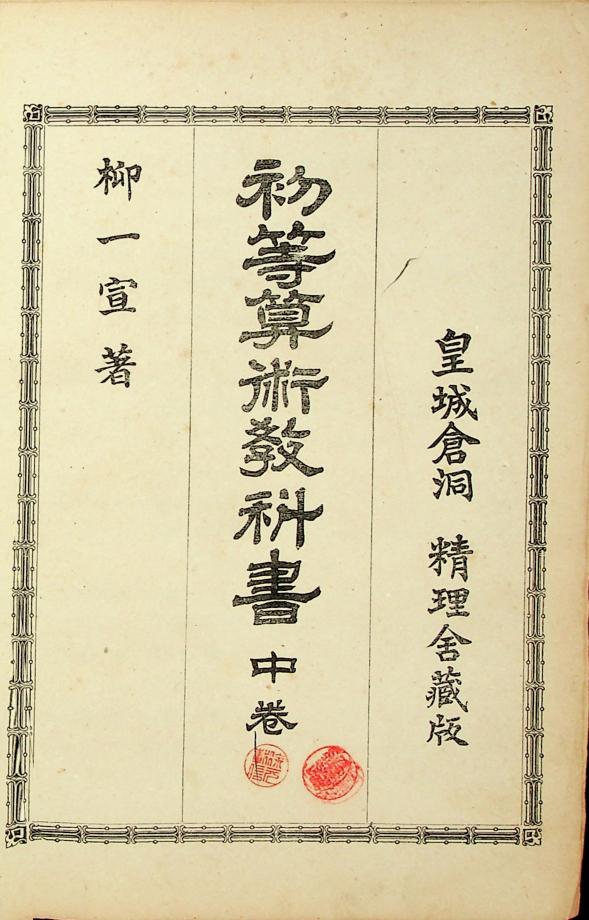 皇城倉洞 精理舍藏版
初等算術教科書 中卷
柳一宣著